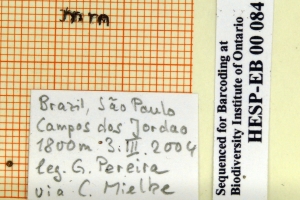 mm
Brazil, São Paulo
Campos dos Jordao
1800m 3.III.2004
leg. G. Pereira
via C. Mielke
Sequenced for Barcoding at
Biodiversity Institute of Ontario
HESP-EB 00 084